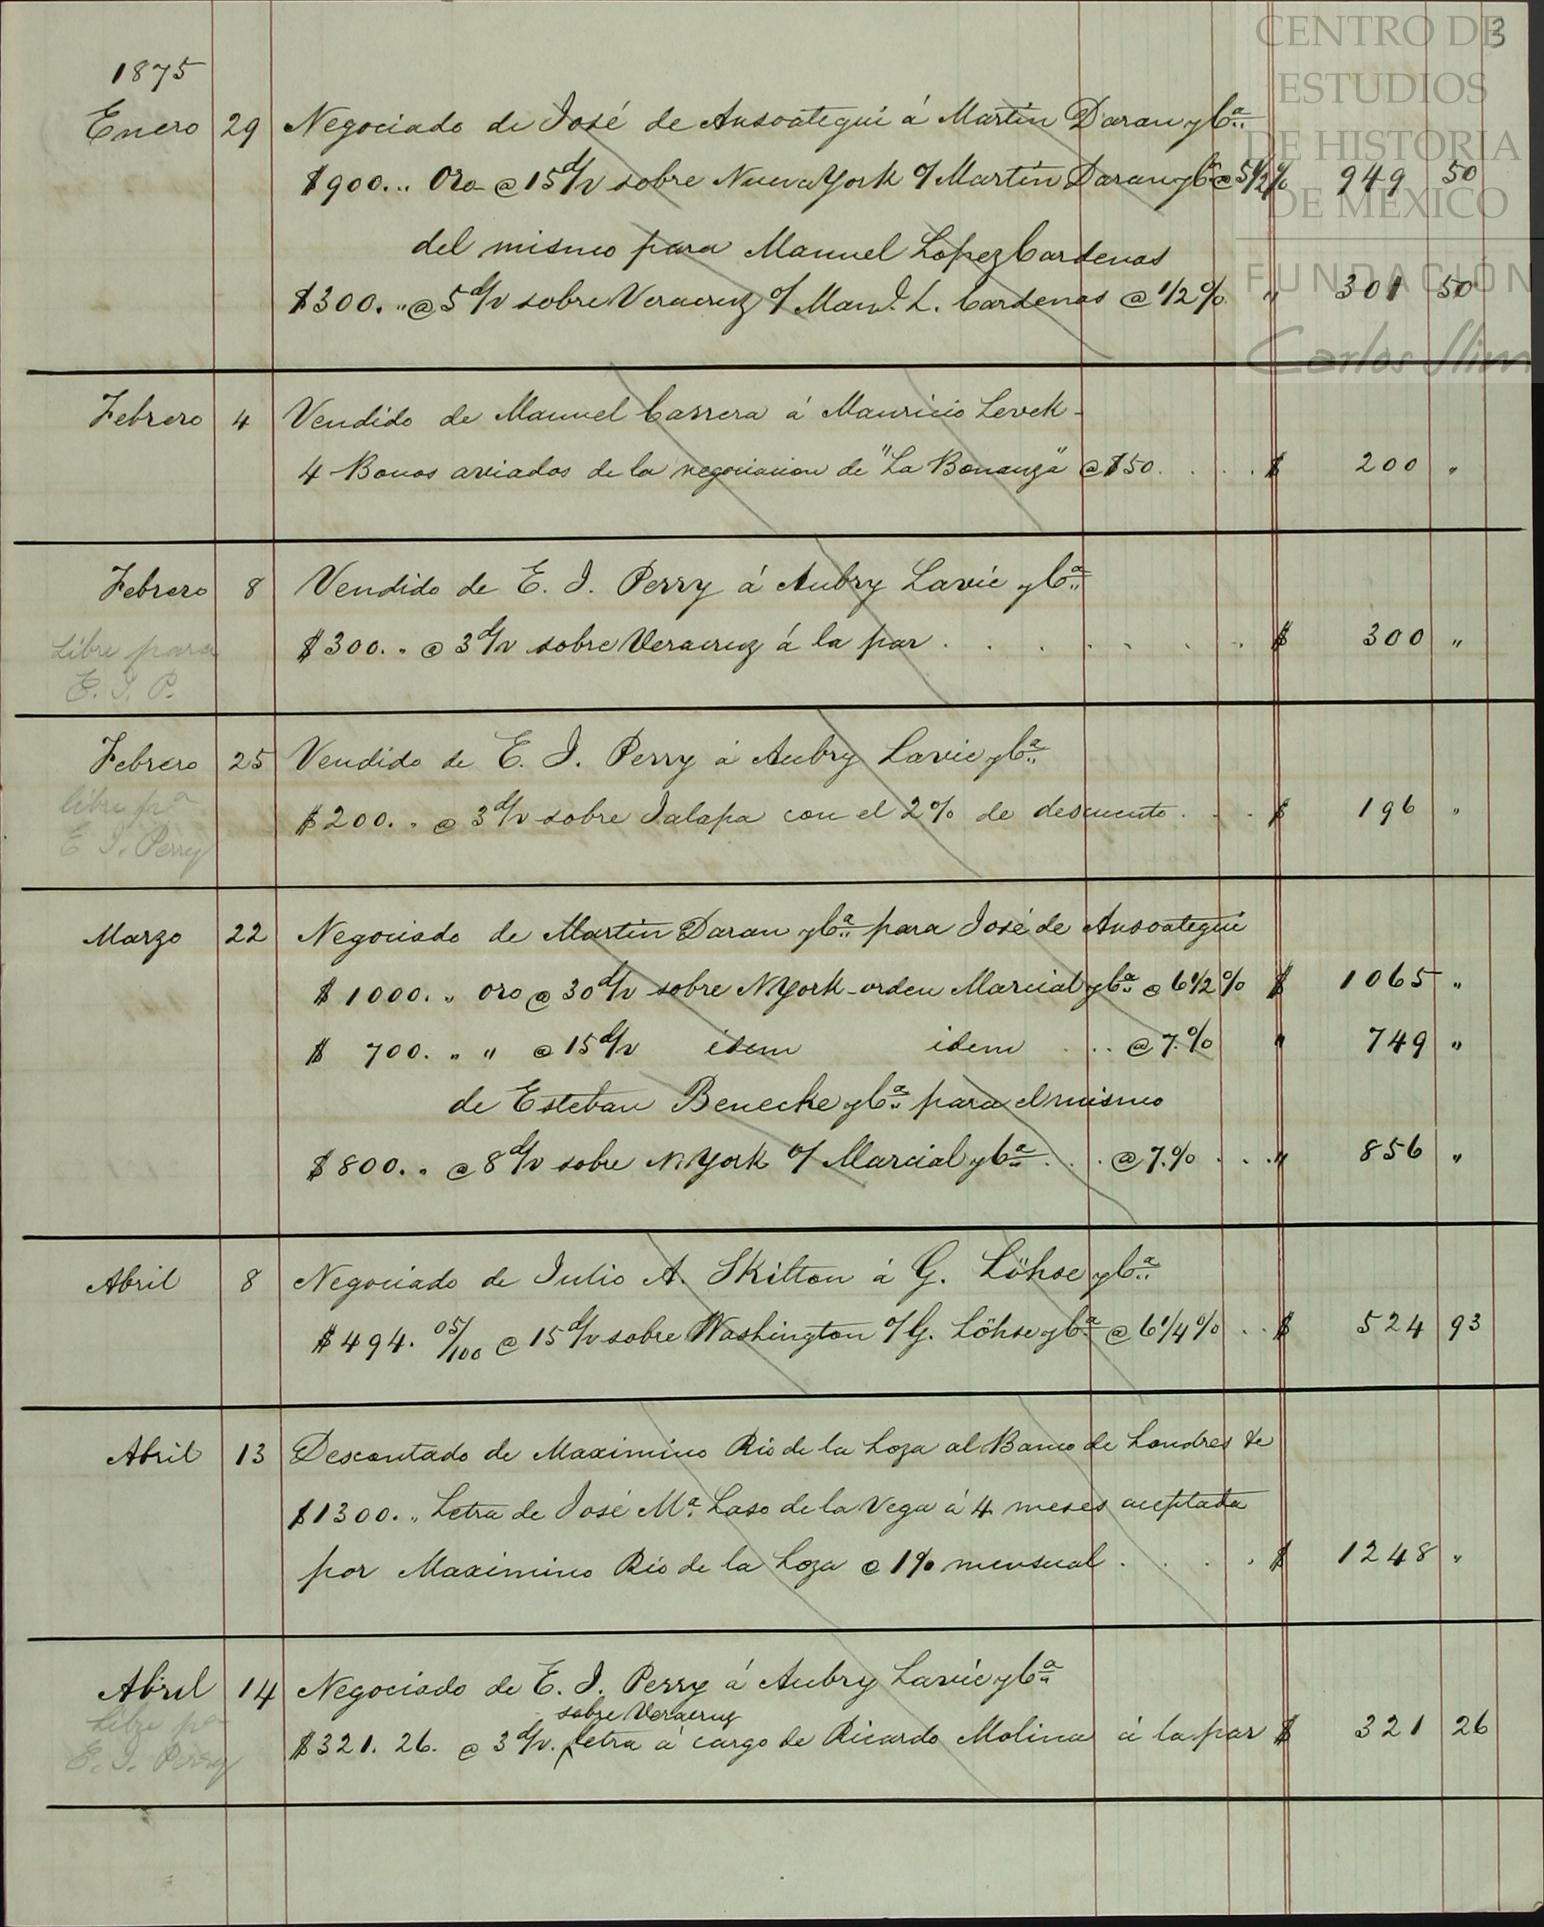 CENTRO DE
ESTUDIOS
DE HISTORIA
DE MEXICO
FUNDACIÓN
Carlos Slim
3
1875
Enero 29 Negociado de José de Ansoategui á Martin Daran y Cª
$900.. Oro @ 15 d/v sobre Nueva York o/ Martin Daran y Cª @ 5 1/2 % 949 50
del mismo para Manuel Lopez Cardenas
$300. " @ 5 d/v sobre Veracruz o/ Man.l L. Cardenas @ 1/2 % " 301 50
Febrero 4 Vendido de Manuel Carrera á Mauricio Levek -
4 Bonos aviados de la negociacion de "La Bonanza" @ $50 . . . . $ 200 "
Febrero 8 Vendido de E. I. Perry á Aubry Lavie y Cª
Libre para
E. I. P.
$300. " @ 3 d/v sobre Veracruz á la par . . . . . . . $ 300 "
Febrero 25 Vendido de E. I. Perry á Aubry Lavie y Cª
libre pª
E I. Perry
$200. " @ 3 d/v sobre Jalapa con el 2% de descuento . . . $ 196 "
Marzo 22 Negociado de Martin Daran y Cª para José de Ansoategui
$1000. " oro @ 30 d/v sobre N. York - orden Marcial y Cª @ 6 1/2 % $ 1065 "
$ 700. " " @ 15 d/v idem idem . .. @ 7.% " 749 "
de Esteban Benecke y Cª para el mismo
$800. " @ 8 d/v sobre N. York o/ Marcial y Cª . . . @ 7.% . . . " 856 "
Abril 8 Negociado de Julio A. Skilton á G. Löhse y Cª
$494. 05/100 @ 15 d/v sobre Washington o/ G. Löhse y Cª @ 6 1/4 % . . $ 524 93
Abril 13 Descontado de Maximino Rio de la Loza al Banco de Londres &c
$1300. " Letra de José Mª Laso de la Vega á 4 meses aceptada
por Maximino Rio de la Loza @ 1% mensual . . . . . $ 1248 "
Abril 14 Negociado de E. I. Perry á Aubry Lavie y Cª
Libre pª
E. I. Perry
sobre Veracruz
$321. 26. @ 3 d/v. letra á cargo de Ricardo Molina á la par $ 321 26